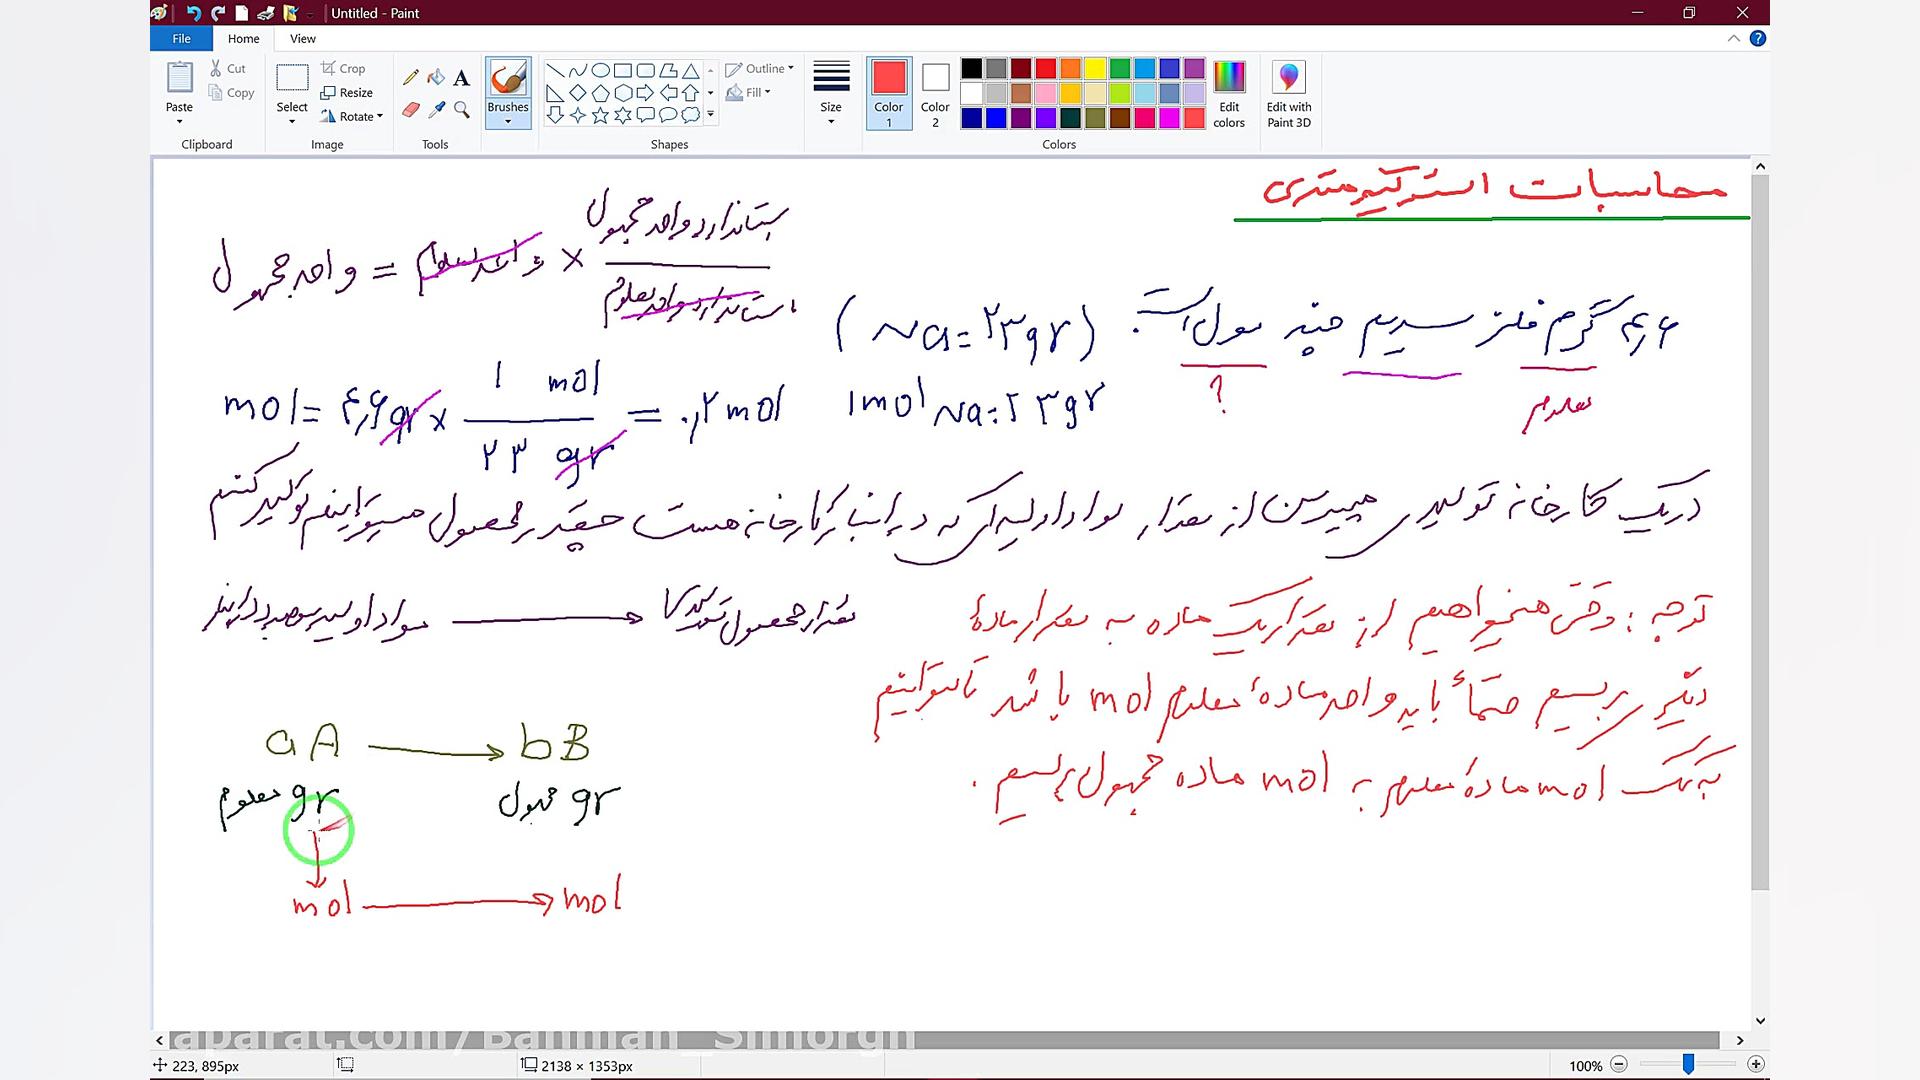 Untitled - Paint
File Home View
Paste
Cut
Copy
Clipboard
Select
Crop
Resize
Rotate
Image
Tools
Brushes
Shapes
Outline
Fill
Size
Color 1
Color 2
Edit colors
Edit with Paint 3D
Colors
محاسبات استوکیومتری
واحد مجهول = واحد معلوم × استاندارد واحد مجهول / استاندارد واحد معلوم
۴,۶ گرم فلز سدیم چند مول است. (Na = ۲۳gr)
معلوم ?
mol = ۴,۶gr × ۱ mol / ۲۳ gr = ۰,۲mol
1mol Na = ۲۳gr
در یک کارخانه تولیدی میپرسن از مقدار مواد اولیه ای که در انبار کارخانه هست چقدر محصول میتوانیم تولید کنیم
مواد اولیه موجود در انبار → مقدار محصول تولید
توجه : وقتی میخواهیم از مقدار یک ماده به مقدار مادهٔ
دیگر برسیم حتماً باید واحد مادهٔ معلوم mol باشد تا بتوانیم
به کمک mol مادهٔ معلوم به mol ماده مجهول برسیم .
aA → bB
gr معلوم
gr مجهول
mol → mol
aparat.com/Bahman_Simorgh
223, 895px
2138 × 1353px
100%